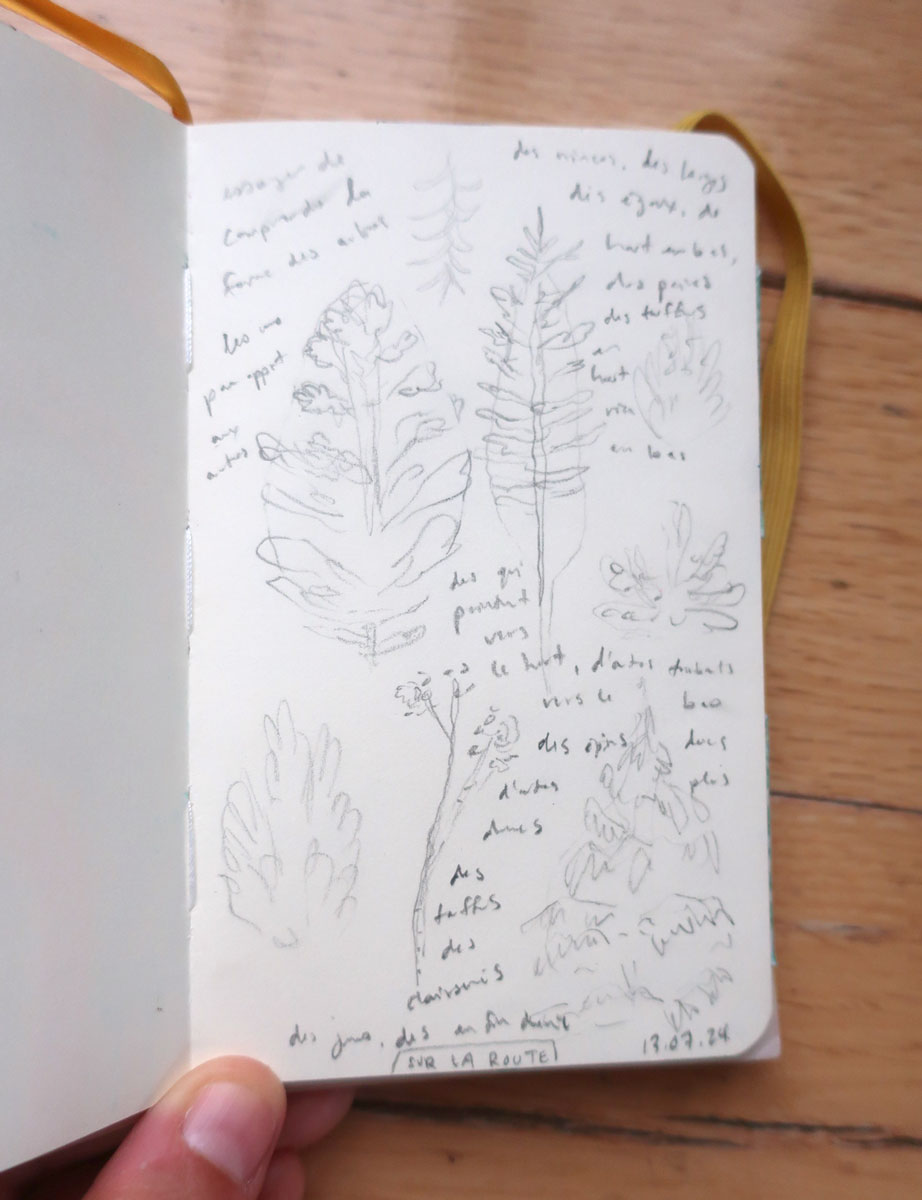 essayer de
comprendre la
forme des arbres
les uns
par rapport
aux
autres
des minces, des longs
des égaux, de
haut en bas,
des paires
des touffus
en
haut
rien
en bas
des qui
pointent
vers
le haut, d'autres tombants
vers le bas
des épais, durs
d'autres plus
durs
des
touffus
des
clairsemés
des jeunes, des en fin de vie
SUR LA ROUTE
13.07.24